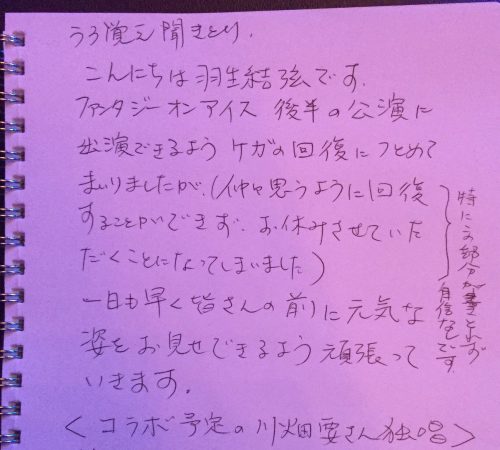 うろ覚え聞きとり.
こんにちは羽生結弦です.
ファンタジーオンアイス 後半の公演に
出演できるよう ケガの回復につとめて
まいりましたが、(仲々思うように回復
することができず、お休みさせていた
だくことになってしまいました)
一日も早く皆さんの前に元気な
姿をお見せできるよう 頑張って
いきます.
<コラボ予定の川畑要さん独唱>
特にこの部分が書きとれず
自信なしです